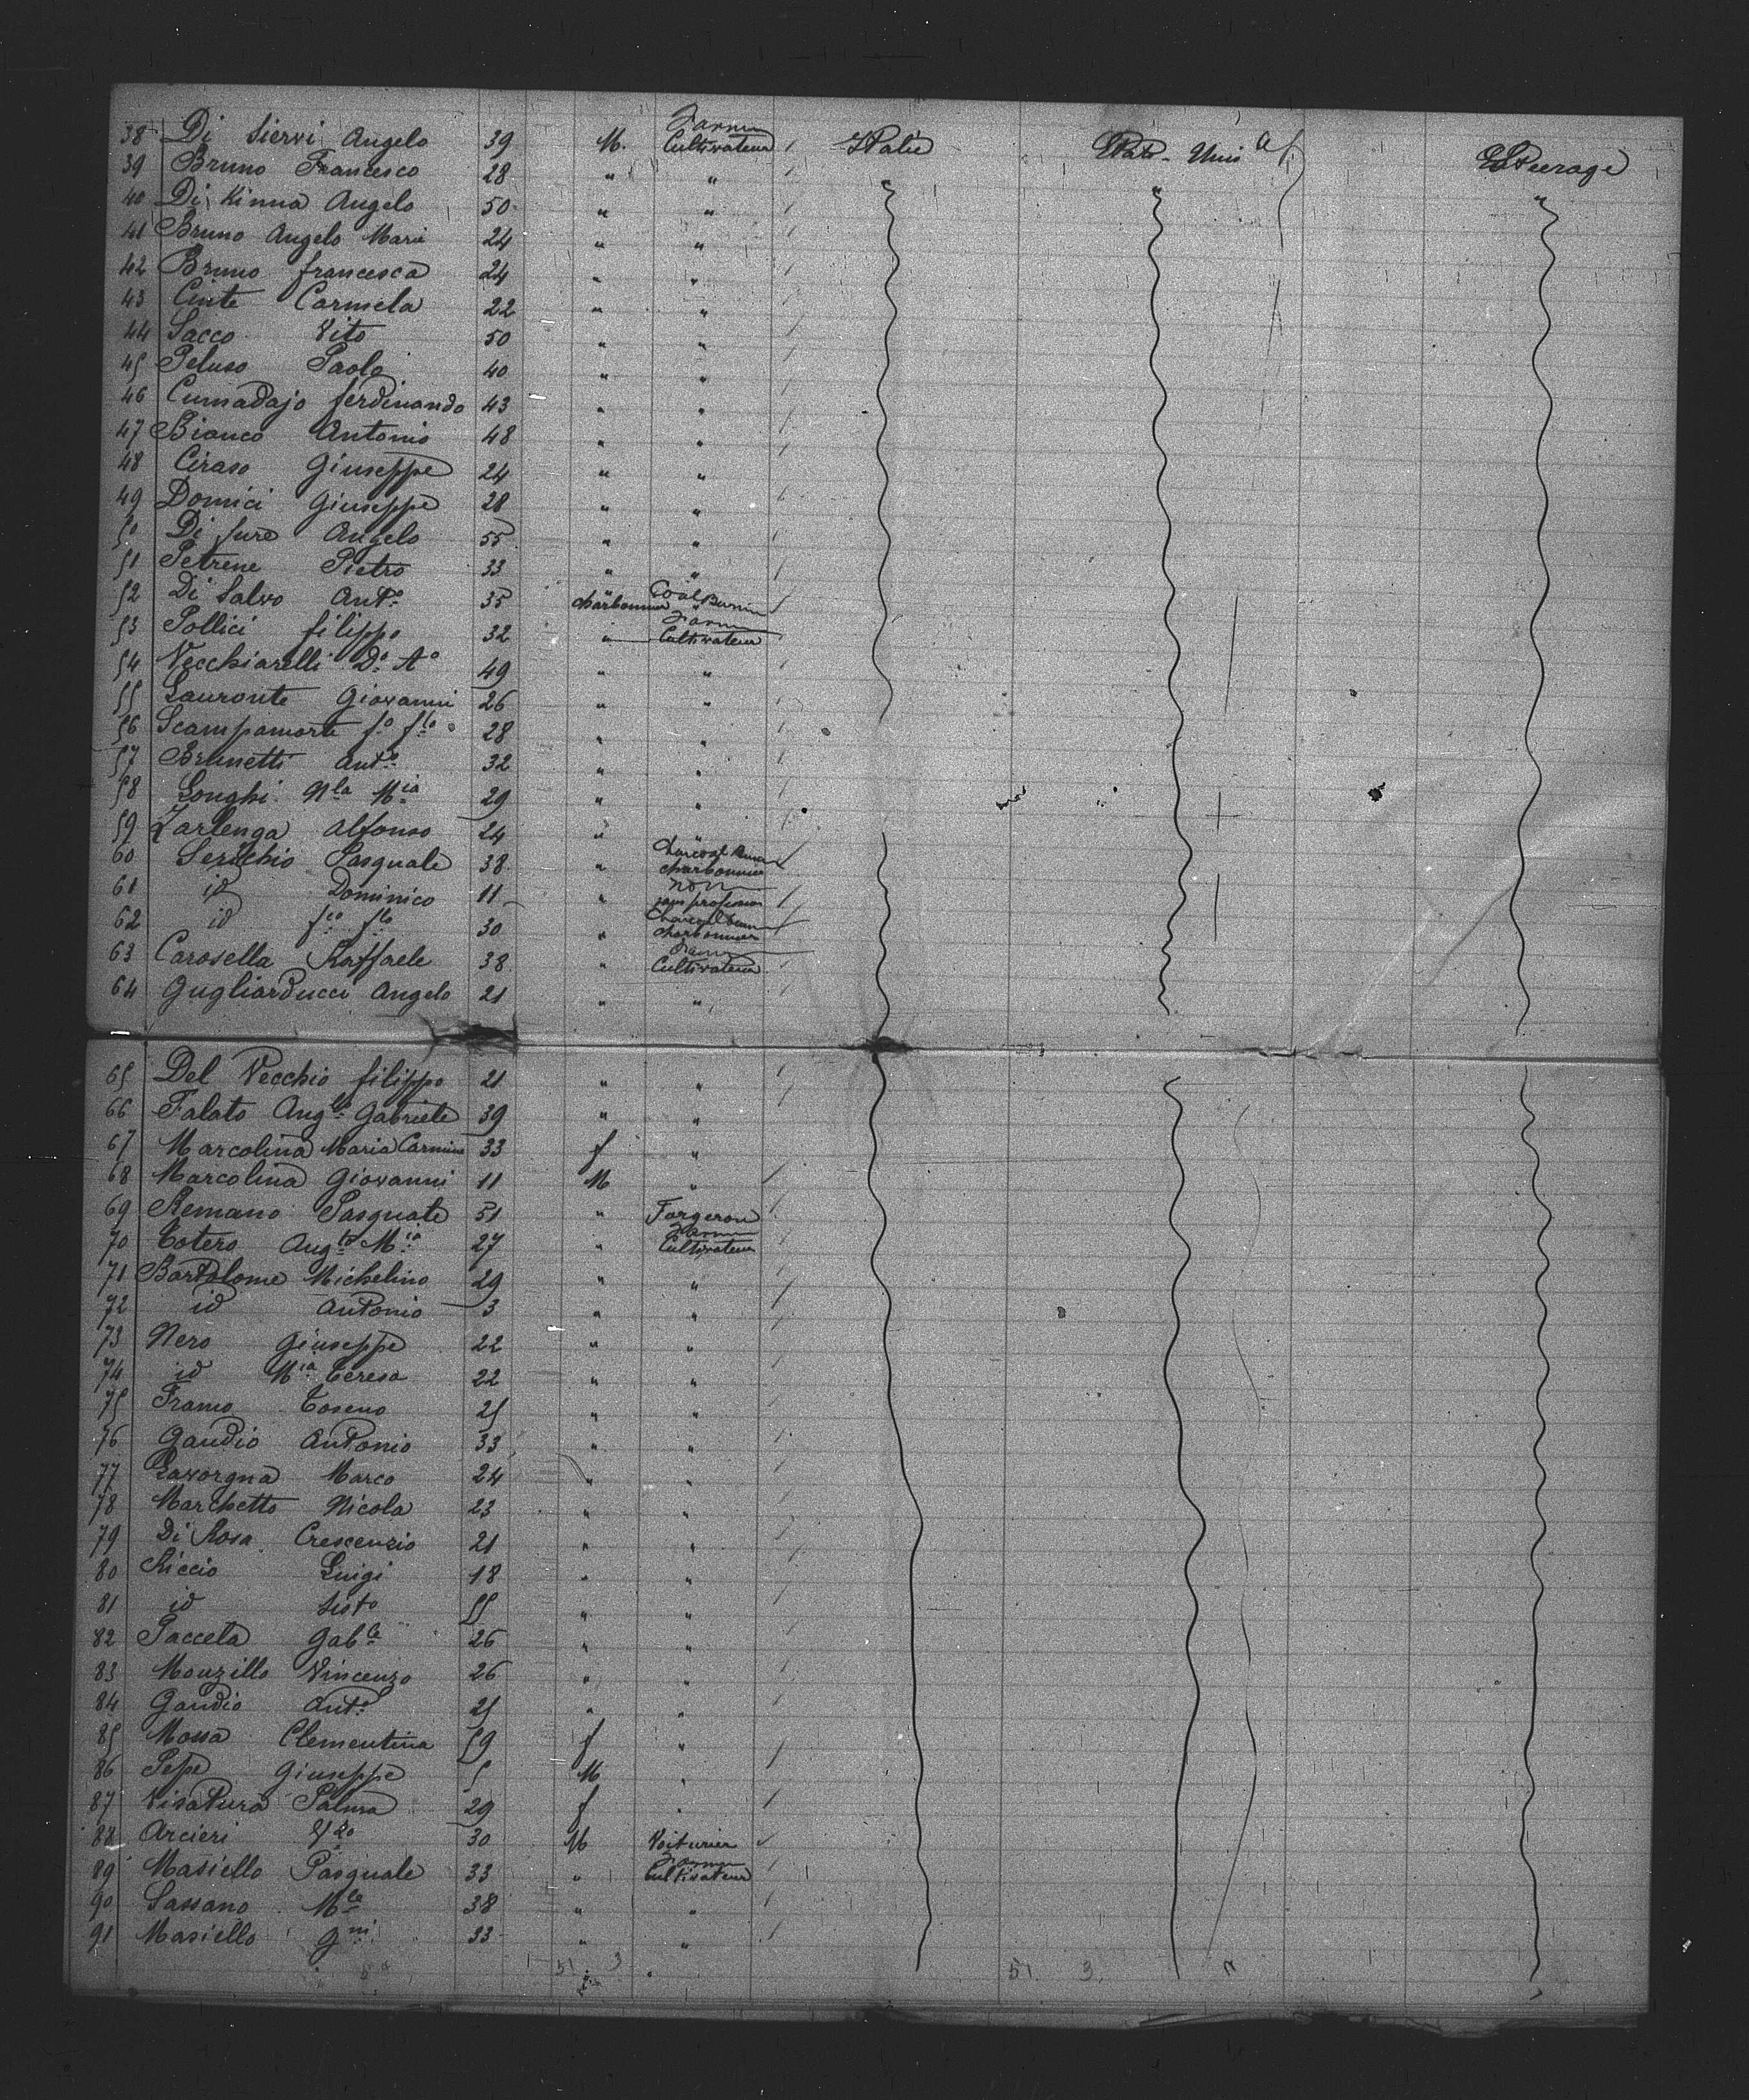 38 Di Siervi Angelo 39 M. Farmer Cultivateur Italie Etats-Unis Entrepont Steerage
39 Bruno Francesco 28 " "
40 Di Kinna Angelo 50 " "
41 Bruno Angelo Maria 24 " "
42 Bruno francesca 24 " "
43 Cinte Carmela 22 " "
44 Sacco Vito 50 " "
45 Peluso Paolo 40 " "
46 Cumadajo ferdinando 43 " "
47 Bianco Antonio 48 " "
48 Ciraso Giuseppe 24 " "
49 Domici Giuseppe 28 " "
50 Di fure Angelo 55 " "
51 Petrene Pietro 33 " "
52 Di Salvo Anto 35 " charbonnier Coal Burner "
53 Pollici filippo 32 " Farmer Cultivateur
54 Vecchiarelli Do Ao 49 " "
55 Lauronte Giovanni 26 " "
56 Scampamorte fo flo 28 " "
57 Brunetti Anto 32 " "
58 Longhi Nla Mia 29 " "
59 Zarlenga Alfonso 24 " "
60 Sericchio Pasquale 38 " charcoal Burner charbonnier
61 id Dominico 11 " non sans profession
62 id fco flo 30 " charcoal burner charbonnier
63 Carosella Raffaele 38 " Farmer Cultivateur
64 Gugliarducci Angelo 21 " "
65 Del Vecchio filippo 21 " "
66 Falato Anglo Gabriele 39 " "
67 Marcolina Maria Carmine 33 f "
68 Marcolina Giovanni 11 M "
69 Remano Pasquale 51 " Forgeron
70 Cotero Anglo Mia 27 " Farmer Cultivateur
71 Bartolome Michelino 29 " "
72 id Antonio 3 " "
73 Nero Giuseppe 22 " "
74 id Mia Teresa 22 " "
75 Framo Coseno 25 " "
76 Gaudio Antonio 33 " "
77 Lavorgna Marco 24 " "
78 Marchetto Nicola 23 " "
79 Di Rosa Crescenzio 21 " "
80 Riccio Luigi 18 " "
81 id Sisto 55 " "
82 Pacceta Gable 26 " "
83 Monzillo Vincenzo 26 " "
84 Gaudio Anto 25 " "
85 Mossa Clementina 59 f "
86 Pepe Giuseppe 5 M "
87 Visatura Palma 29 f "
88 Arcieri 30 M Voiturier
89 Masiello Pasquale 33 " Farmer Cultivateur
90 Sassano Mle 38 " "
91 Masiello Gni 33 " "
51 3 51. 3.